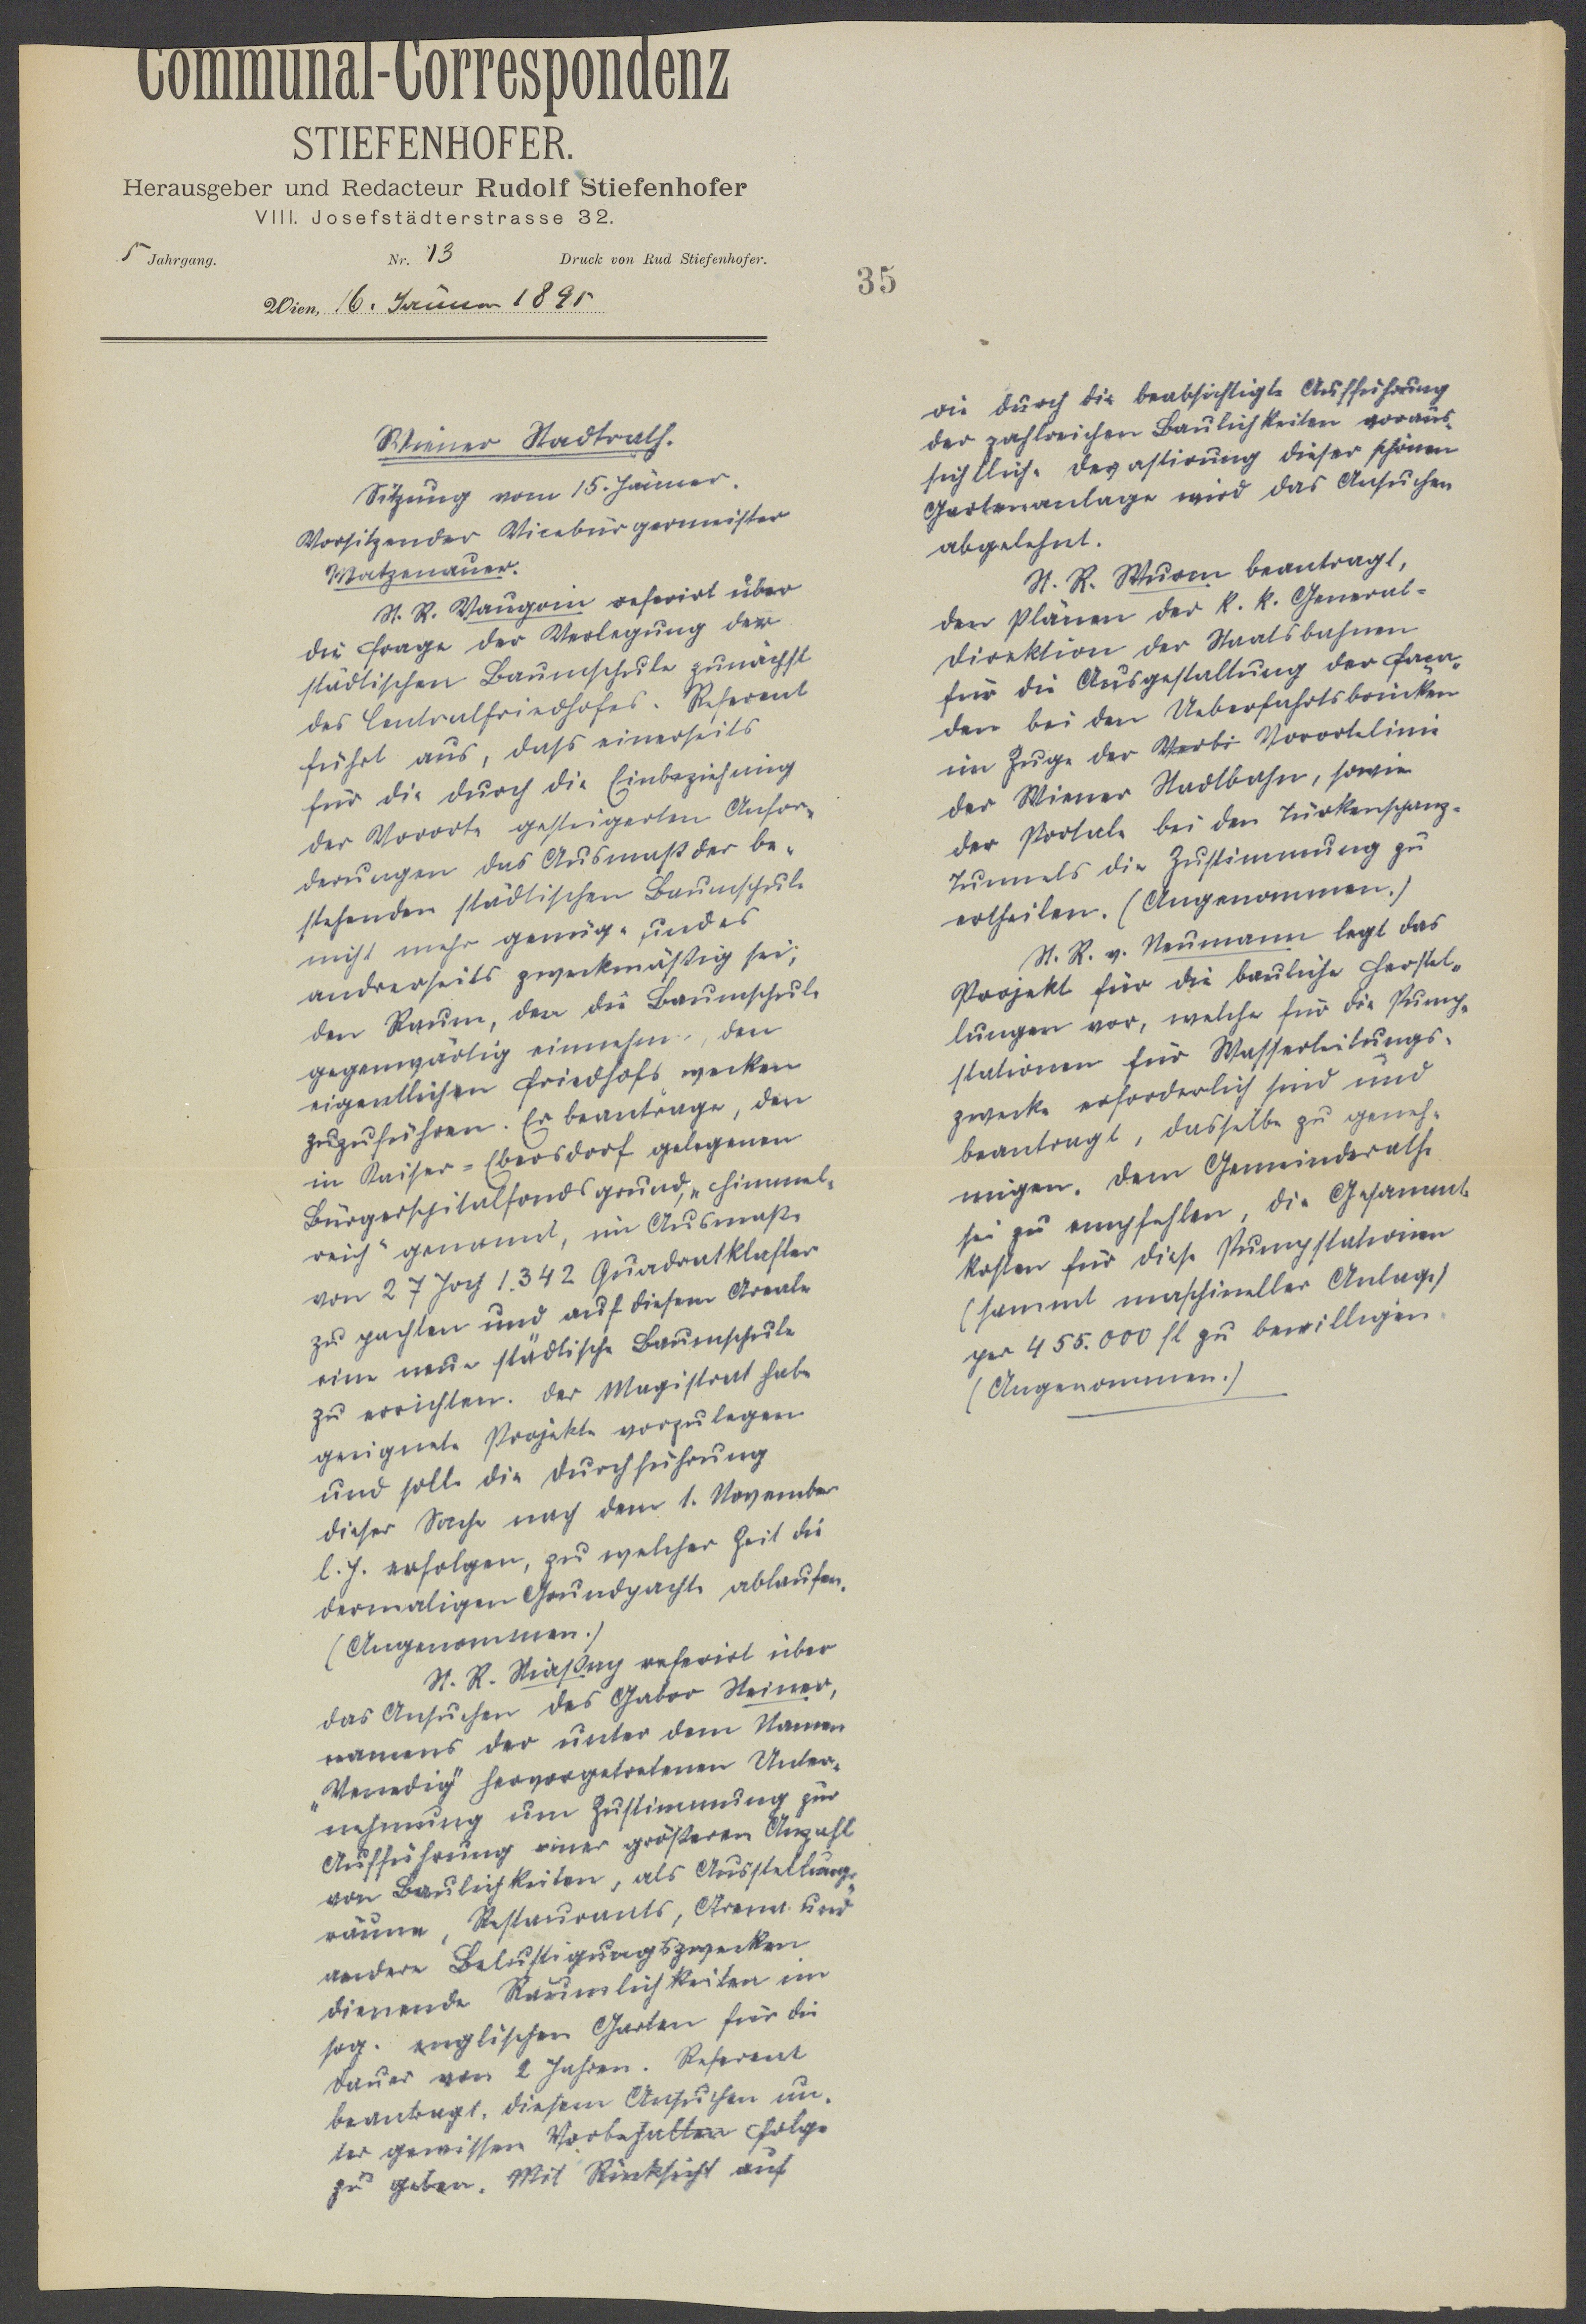 Communal-Correspondenz
STIEFENHOFER.
Herausgeber und Redacteur Rudolf Stiefenhofer
VIII. Josefstädterstrasse 32.
5 Jahrgang. Nr. 13 Druck von Rud Stiefenhofer.
Wien, 16. Jänner 1895
35
Wiener Stadtrath.
Sitzung vom 15. Jänner.
Vorsitzender Vicebürgermeister
Matzenauer.
St. R. Vaugoin referirt über
die Frage der Verlegung der
städtischen Baumschule zunächst
des Centralfriedhofes. Referent
führt aus, dass einerseits
für die durch die Einbeziehung
der Vororte gesteigerten Anfor-
derungen das Ausmaß der be-
stehenden städtischen Baumschule
nicht mehr genüge und es
andererseits zweckmäßig sei,
den Raum, den die Baumschule
gegenwärtig einnehme, den
eigentlichen Friedhofszwecken
zuzuführen. Er beantrage, den
in Kaiser-Ebersdorf gelegenen
Bürgerspitalfondsgrund, „Himmel-
reich" genannt, im Ausmaße
von 27 Joch 1.342 Quadratklafter
zu pachten und auf diesem Areale
eine neue städtische Baumschule
zu errichten. Der Magistrat habe
geeignete Projekte vorzulegen
und solle die Durchführung
dieser Sache nach dem 1. November
l. J. erfolgen, zu welcher Zeit die
dermaligen Grundpachte ablaufen.
(Angenommen.)
St. R. Stiaßny referirt über
das Ansuchen des Gabor Steiner,
namens der unter dem Namen
„Venedig" hervorgetretenen Unter-
nehmung um Zustimmung zur
Aufführung einer größeren Anzahl
von Baulichkeiten, als Ausstellungs-
räume, Restaurants, Arena und
andere Belustigungszwecken
dienende Räumlichkeiten im
sog. englischen Garten für die
Dauer von 2 Jahren. Referent
beantragt, diesem Ansuchen un-
ter gewissen Vorbehalten Folge
zu geben. Mit Rücksicht auf
die durch die beabsichtigte Aufführung
der zahlreichen Baulichkeiten voraus-
sichtliche Devastirung dieser schönen
Gartenanlage wird das Ansuchen
abgelehnt.
St. R. Wurm beantragt,
den Plänen der k. k. General-
direktion der Staatsbahnen
für die Ausgestaltung der Faça-
den bei den Ueberfahrtsbrücken
im Zuge der Vorortelinie
der Wiener Stadtbahn, sowie
der Portale bei den Türkenschanz-
Tunnels die Zustimmung zu
ertheilen. (Angenommen.)
St. R. v. Neumann legt das
Projekt für die bauliche Herstel-
lungen vor, welche für die Pump-
stationen für Wasserleitungs-
zwecke erforderlich sind und
beantragt, dasselbe zu geneh-
migen. Dem Gemeinderathe
sei zu empfehlen, die Gesammt-
kosten für diese Pumpstationen
(sammt maschineller Anlage)
per 455.000 fl zu bewilligen.
(Angenommen.)